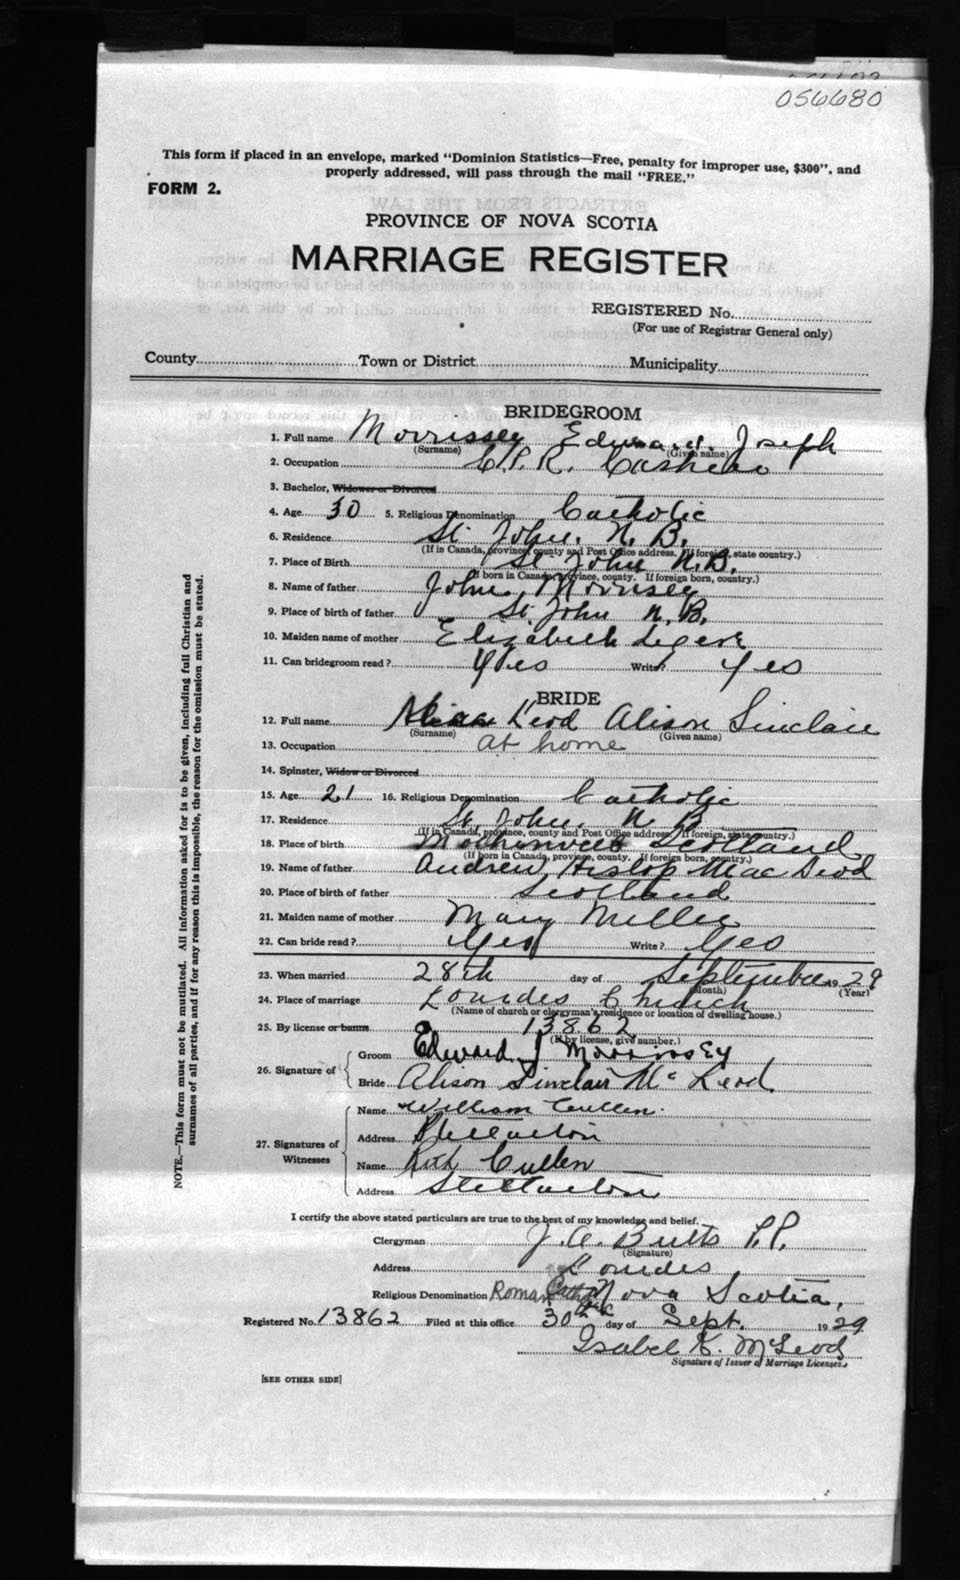 056680
This form if placed in an envelope, marked "Dominion Statistics—Free, penalty for improper use, $300", and
properly addressed, will pass through the mail "FREE."
FORM 2.
PROVINCE OF NOVA SCOTIA
MARRIAGE REGISTER
REGISTERED No.
(For use of Registrar General only)
County Town or District Municipality
BRIDEGROOM
1. Full name Morrissey Edward Joseph
(Surname) (Given name)
2. Occupation C.P.R. Cashier
3. Bachelor, Widower or Divorced
4. Age 30 5. Religious Denomination Catholic
6. Residence St. John. N. B.
(If in Canada, province, county and Post Office address. If foreign, state country.)
7. Place of Birth St John N.B.
(If born in Canada, province, county. If foreign born, country.)
8. Name of father John Morrisey
9. Place of birth of father St. John N.B.
10. Maiden name of mother Elizabeth Legere
11. Can bridegroom read? Yes Write? Yes
BRIDE
12. Full name Leod Alison Sinclair
(Surname) (Given name)
13. Occupation at home
14. Spinster, Widow or Divorced
15. Age 21 16. Religious Denomination Catholic
17. Residence St. John. N. B
(If in Canada, province, county and Post Office address. If foreign, state country.)
18. Place of birth Scotland
(If born in Canada, province, county. If foreign born, country.)
19. Name of father Andrew Hislop Mac Leod
20. Place of birth of father Scotland
21. Maiden name of mother Mary Miller
22. Can bride read? Yes Write? Yes
23. When married 28th day of September 1929
(Month) (Year)
24. Place of marriage Lourdes Church
(Name of church or clergyman's residence or location of dwelling house.)
25. By license or banns 13862
(If by license, give number.)
26. Signature of Groom Edward J Morrissey
Bride Alison Sinclair Mc Leod
27. Signatures of Witnesses
Name William Cullen.
Address Stellarton
Name Ruth Cullen
Address Stellarton
I certify the above stated particulars are true to the best of my knowledge and belief.
Clergyman J. A. Butts P.P.
(Signature)
Address Lourdes
Religious Denomination Roman Catholic Nova Scotia,
Registered No. 13862 Filed at this office 30th day of Sept. 1929
Isabel K. McLeod
Signature of Issuer of Marriage Licenses
[SEE OTHER SIDE]
NOTE.—This form must not be mutilated. All information asked for is to be given, including full Christian and
surnames of all parties, and if for any reason this is impossible, the reason for the omission must be stated.